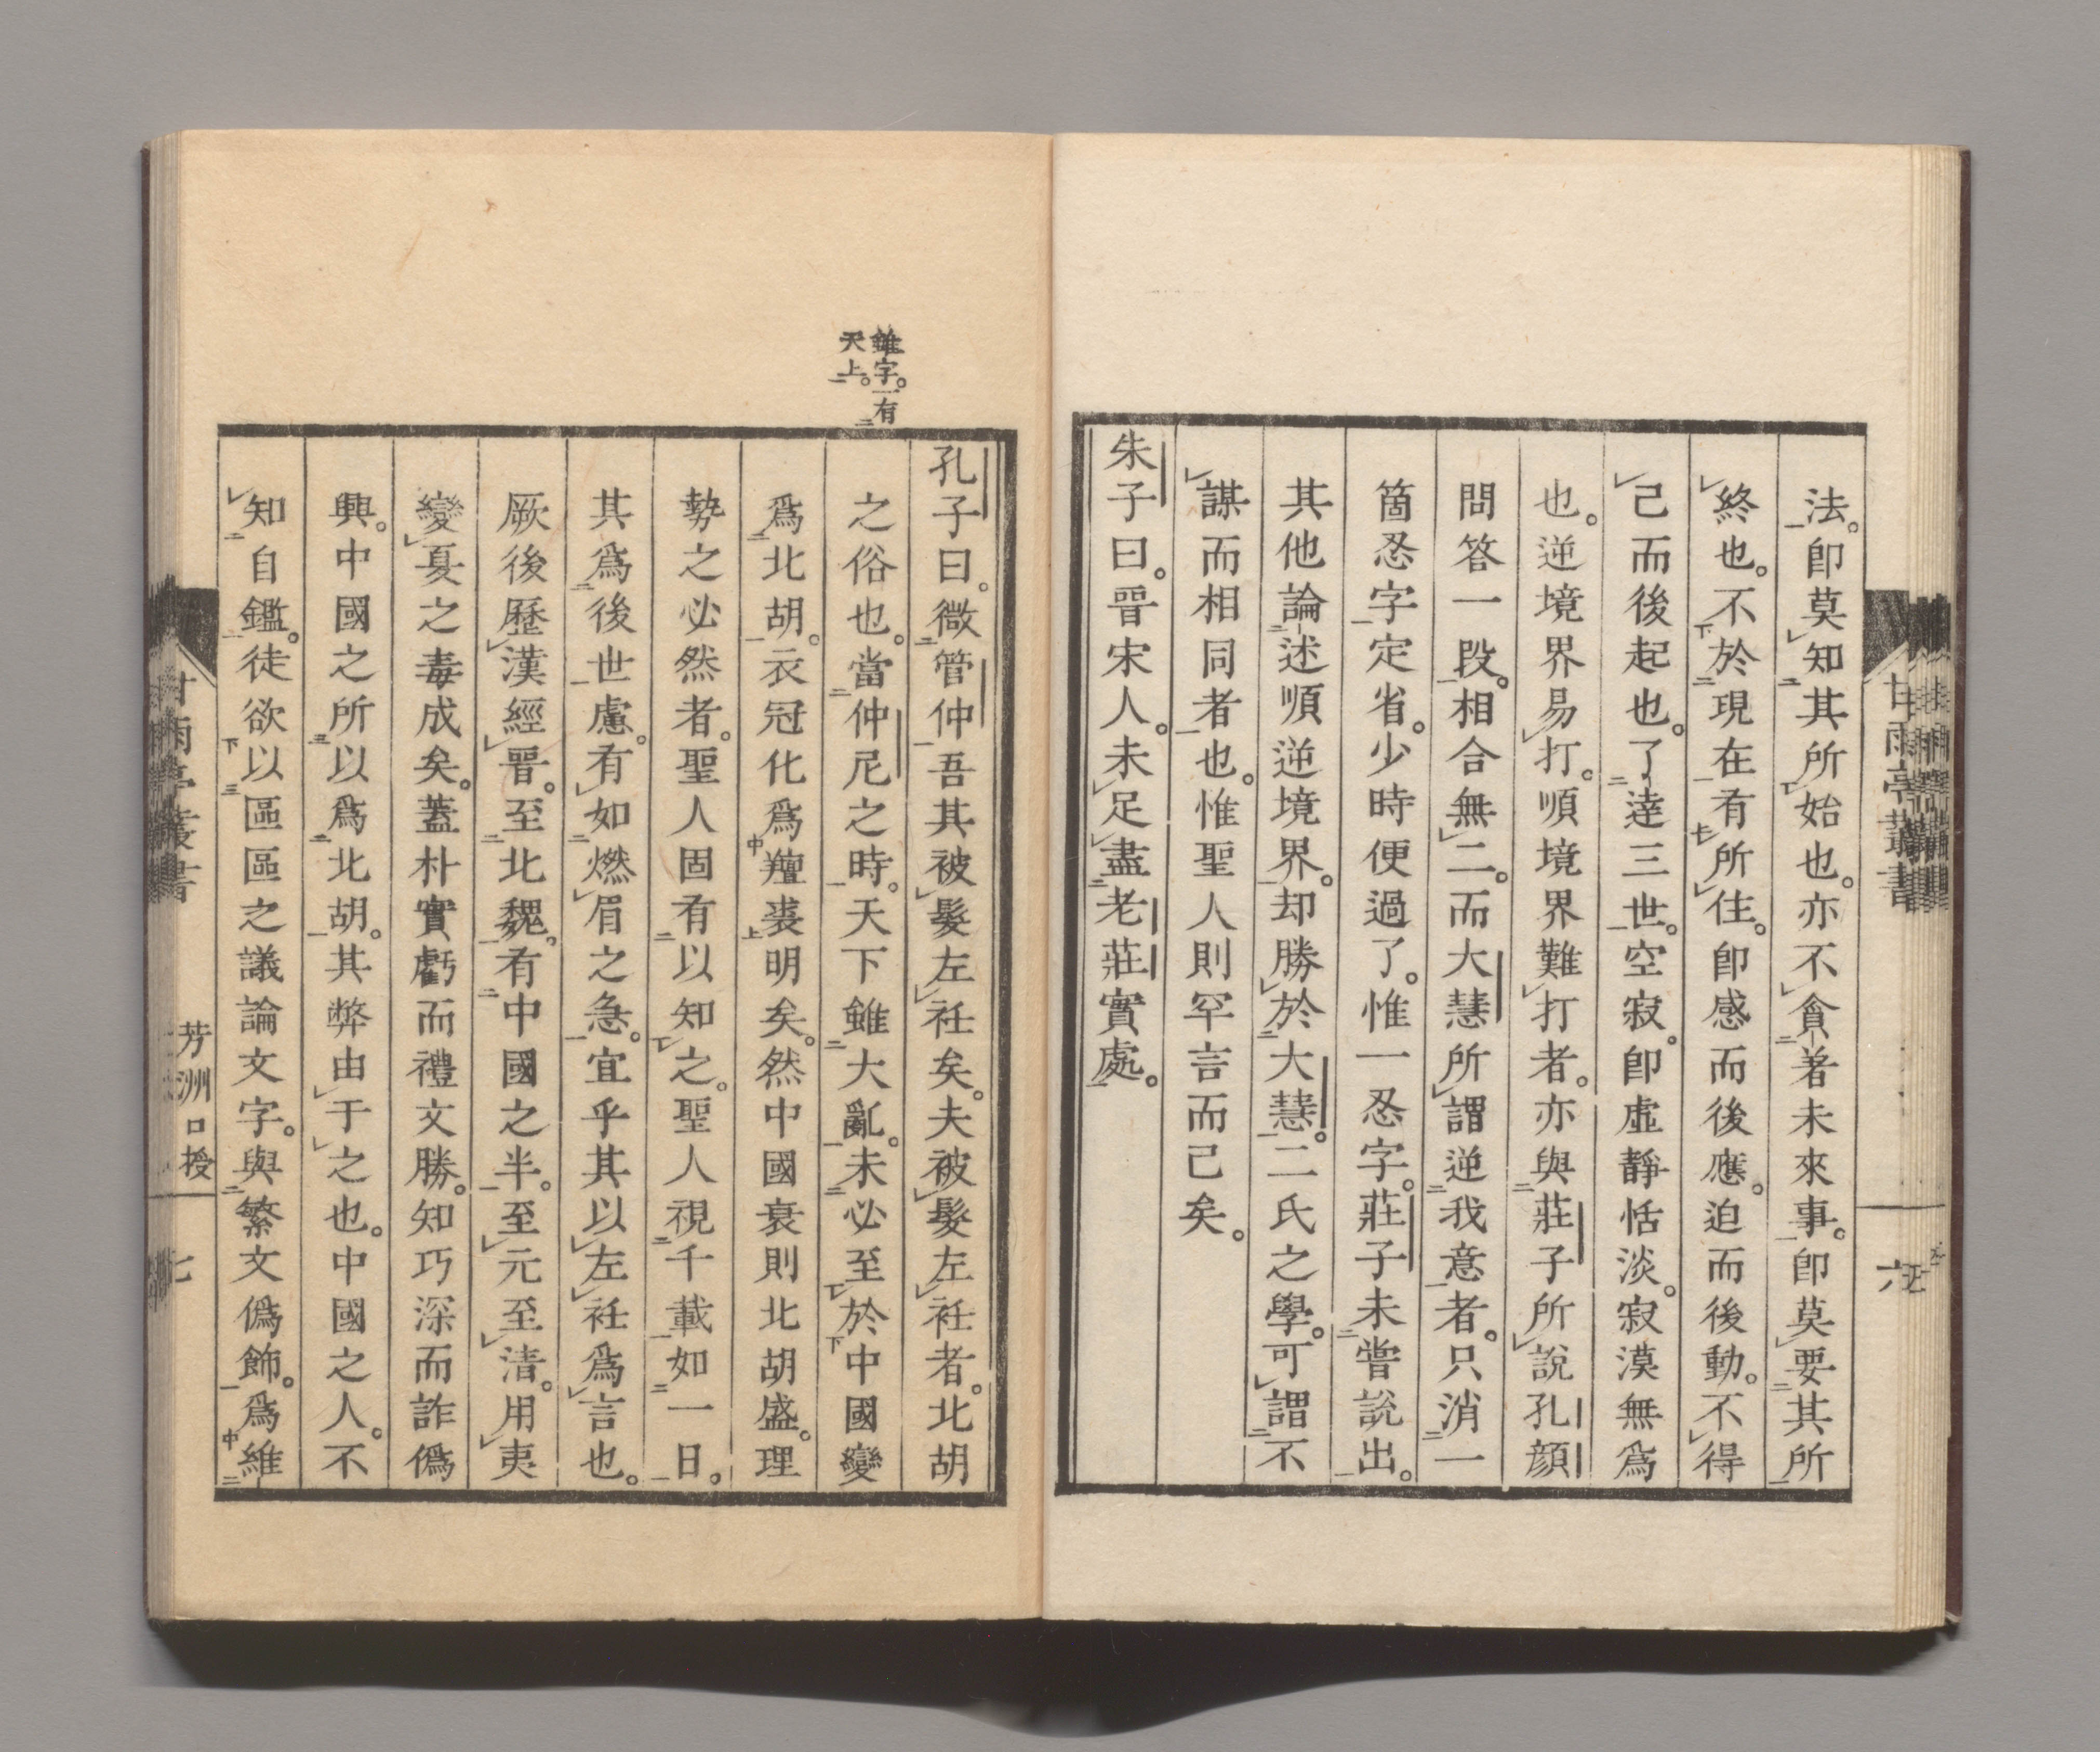 法。卽莫知其所始也。亦不貪著未來事。卽莫要其所
終也。不於現在有所住。卽感而後應。迫而後動。不得
已而後起也。了達三世。空寂。卽虛靜恬淡。寂漠無爲
也。逆境界易打。順境界難打者。亦與莊子所說孔顏
問答一段。相合無二。而大慧所謂逆我意者。只消一
箇忍字定省。少時便過了。惟一忍字。莊子未嘗說出。
其他論述順逆境界。却勝於大慧。二氏之學。可謂不
謀而相同者也。惟聖人則罕言而已矣。
朱子曰。晉宋人。未足盡老莊實處。
甘雨亭叢書
六
雖字。一有
天上。
孔子曰。微管仲吾其被髮左衽矣。夫被髮左衽者。北胡
之俗也。當仲尼之時。天下雖大亂。未必至於中國變
爲北胡。衣冠化爲羶裘明矣。然中國衰則北胡盛。理
勢之必然者。聖人固有以知之。聖人視千載如一日。
其爲後世慮。有如燃眉之急。宜乎其以左衽爲言也。
厥後歷漢經晉。至北魏。有中國之半。至元至清。用夷
變夏之毒成矣。蓋朴實虧而禮文勝。知巧深而詐僞
興。中國之所以爲北胡。其弊由于之也。中國之人。不
知自鑑。徒欲以區區之議論文字。與繁文僞飾。爲維
甘雨亭叢書
芳洲口授
七